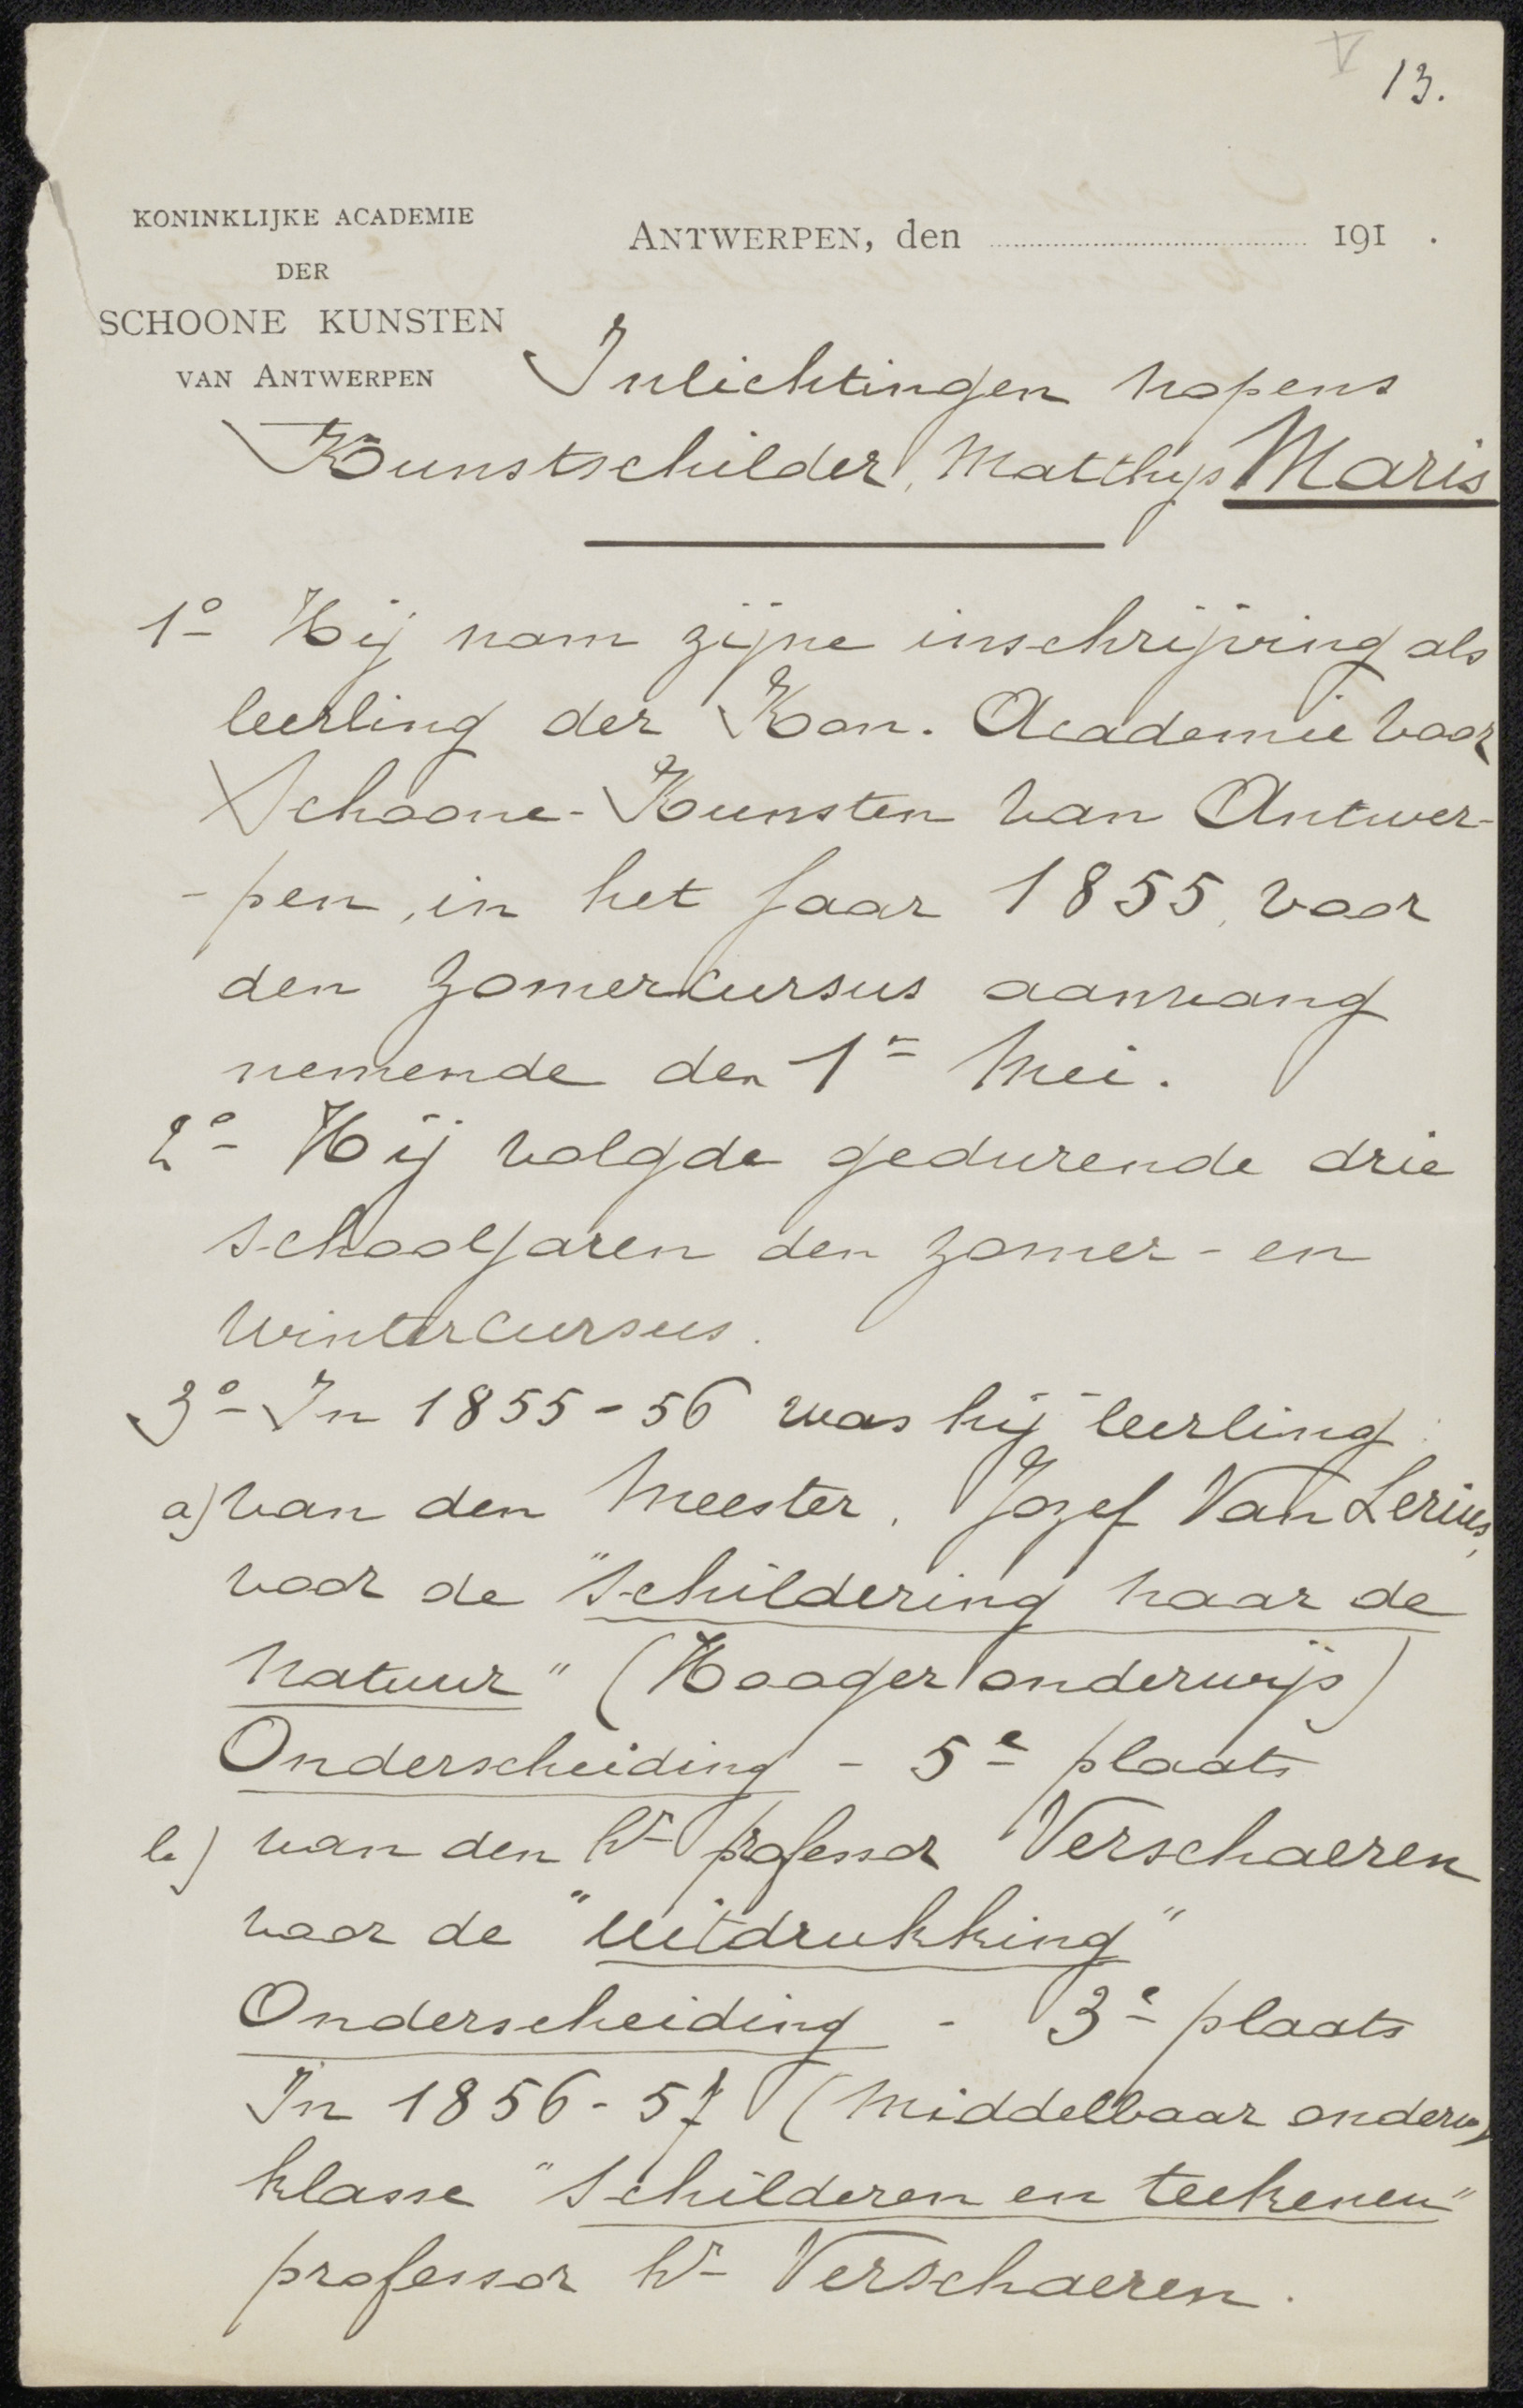 V 13.
KONINKLIJKE ACADEMIE
DER
SCHOONE KUNSTEN
VAN ANTWERPEN
ANTWERPEN, den ........................ 191 .
Inlichtingen nopens
Kunstschilder, Matthys Maris
1º Hij nam zijne inschrijving als
leerling der Kon. Academie voor
Schoone-Kunsten van Antwer-
-pen, in het jaar 1855, voor
den zomercursus aanvang
nemende den 1n Mei.
2º Hij volgde gedurende drie
schooljaren den zomer- en
wintercursus.
3º In 1855-56 was hij leerling:
a) van den Meester, Jozef Van Lerius,
voor de "Schildering naar de
natuur" (Hooger onderwijs)
Onderscheiding - 5e plaats
b) van den hr professor Verschaeren
voor de "uitdrukking"
Onderscheiding - 3e plaats
In 1856-57 (Middelbaar onderw)
klasse "Schilderen en teekenen"
professor hr Verschaeren.